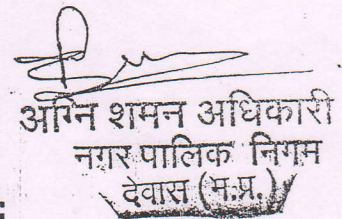 अग्नि शमन अधिकारी
नगर पालिक निगम
देवास (म.प्र.)